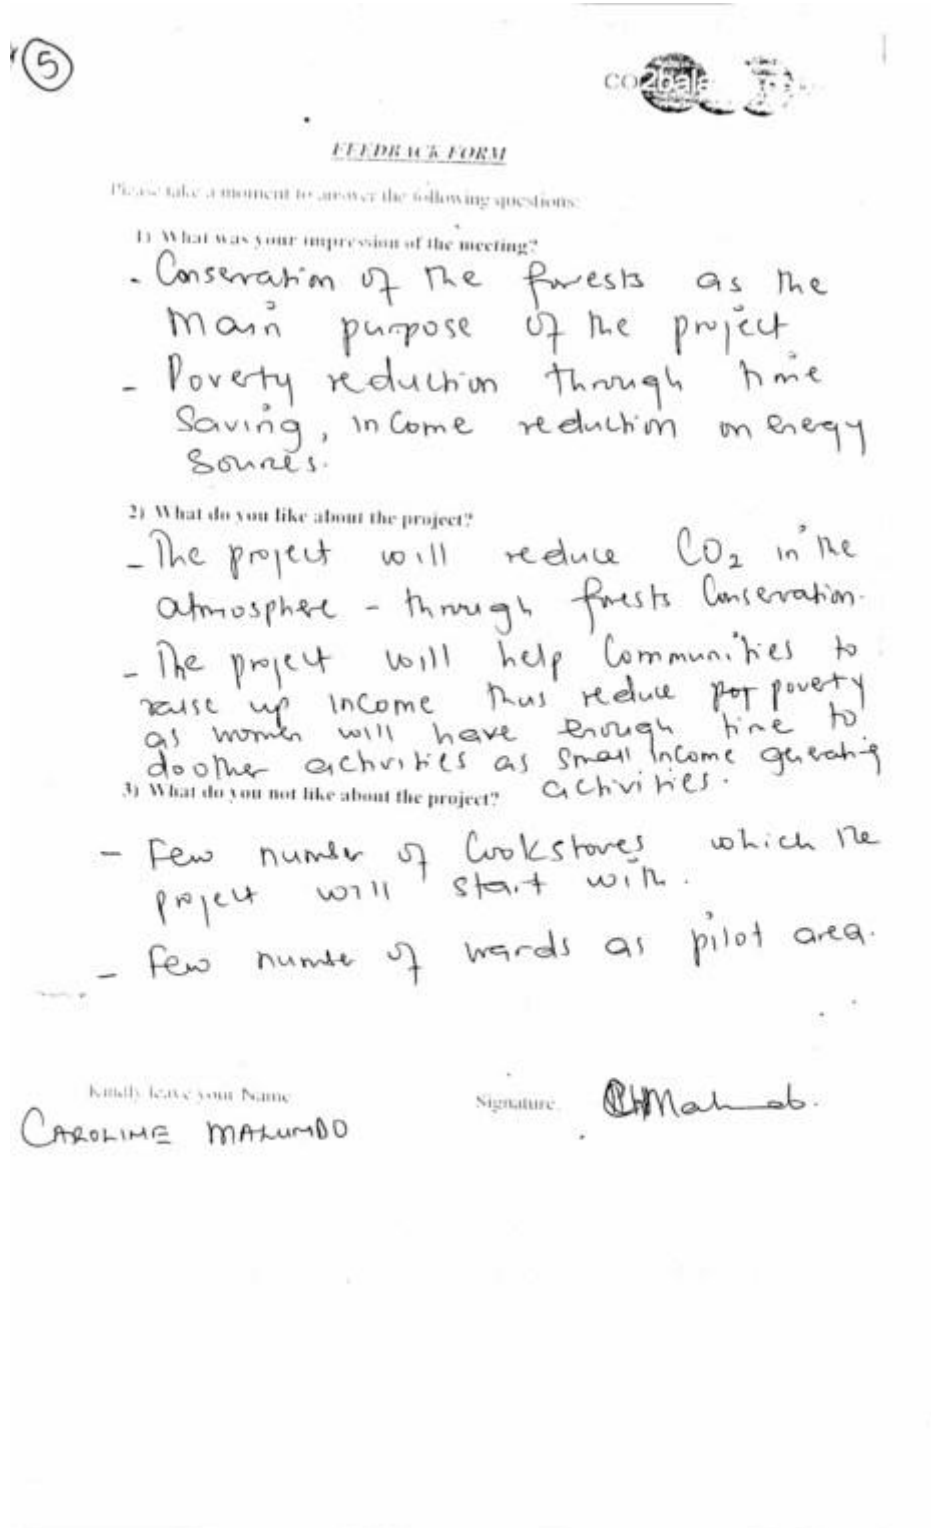 5
CO2bala
FEEDBACK FORM
Please take a moment to answer the following questions:
1) What was your impression of the meeting?
- Conservation of the forests as the
main purpose of the project
- Poverty reduction through time
saving, income reduction on energy
sources.
2) What do you like about the project?
- The project will reduce CO2 in the
atmosphere - through forests Conservation.
- The project will help Communities to
raise up income thus reduce poverty
as women will have enough time to
do other activities as small income generating
activities.
3) What do you not like about the project?
- Few number of Cookstoves which the
project will start with.
- Few number of wards as pilot area.
Kindly leave your Name
Signature
CAROLINE